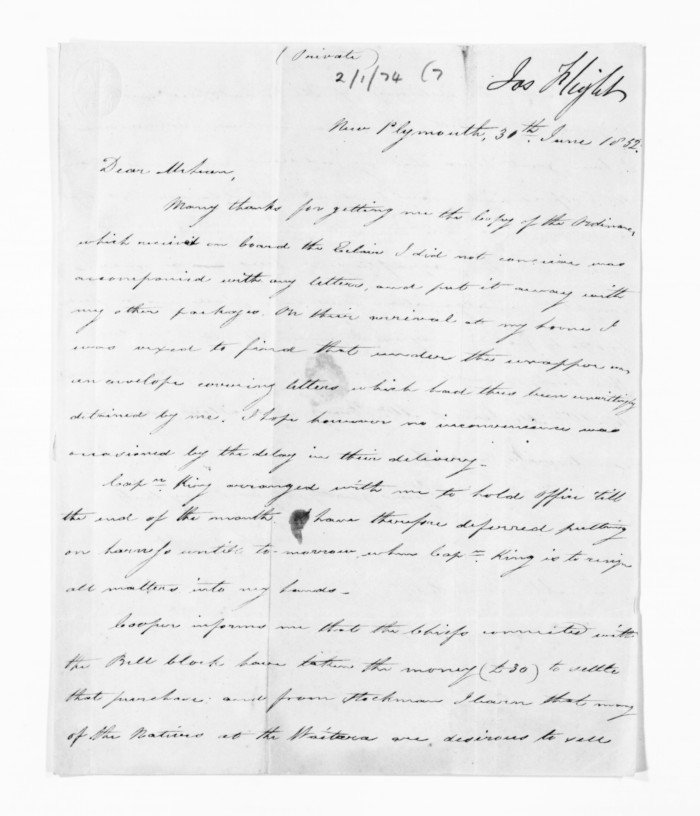 (Private)
2/1/74 (7
Jos Flight
New Plymouth, 30th June 1852.
Dear McLean,
Many thanks for getting me the Copy of the Ordinance,
which receiv'd on board the Eclair I did not conceive was
accompanied with any letters, and put it away with
my other packages. On their arrival at my home I
was vexed to find that under the wrapper was
an envelope covering letters which had thus been unwittingly
detained by me. I hope however no inconvenience was
occasioned by the delay in their delivery.
Capn King arranged with me to hold office till
the end of the month. I have therefore deferred putting
on harness until to-morrow, when Capn King is to resign
all matters into my hands.
Cooper informs me that the Chiefs connected with
the Bell block have taken the money (£30) to settle
that purchase: and from Stockman I learn that many
of the Natives at the Waitara are desirous to sell